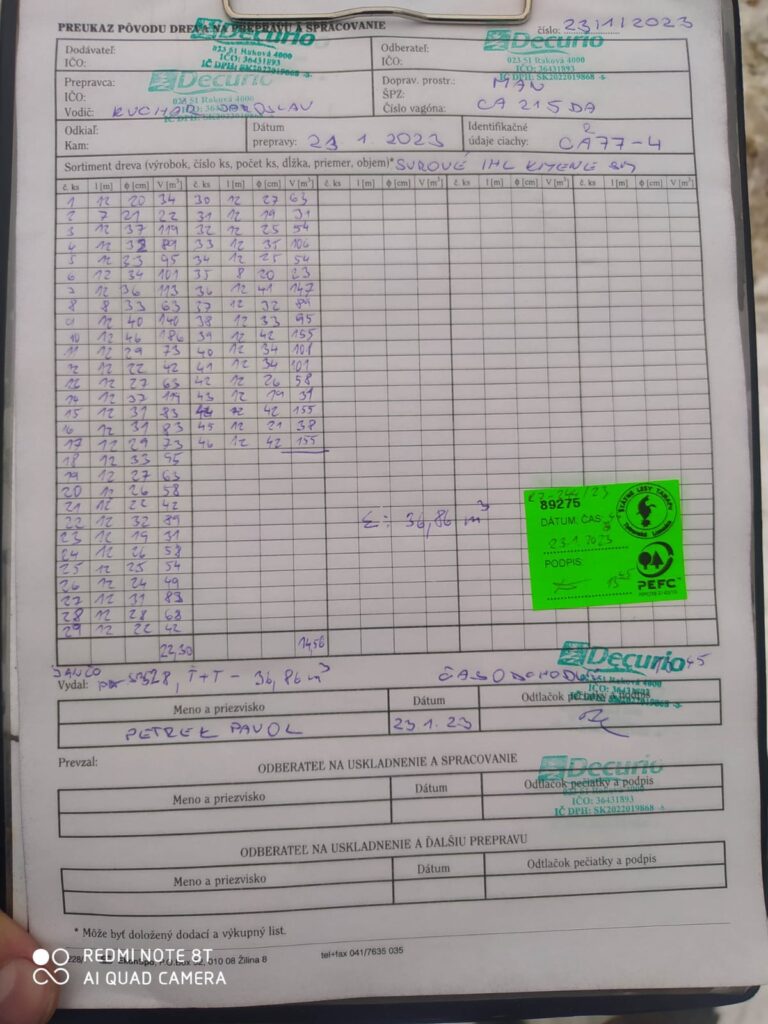 PREUKAZ PÔVODU DREVA NA PREPRAVU A SPRACOVANIE
číslo: 23/1/2023
Decurio
023 51 Raková 4000
IČO: 36431893
IČ DPH: SK2022019868
Decurio
023 51 Raková 4000
IČO: 36431893
IČ DPH: SK2022019868
Dodávateľ:
IČO:
Odberateľ:
IČO:
Decurio
023 51 Raková 4000
Prepravca:
IČO:
Vodič: KUCHAR JAROSLAV
Doprav. prostr.: MAN
ŠPZ:
Číslo vagóna: CA 215 DA
Odkiaľ:
Kam:
Dátum
prepravy: 23 1. 2023
Identifikačné
údaje ciachy: CA77-4
Sortiment dreva (výrobok, číslo ks, počet ks, dĺžka, priemer, objem)* SUROVÉ IHL KMENE SM
č. ks l [m] ϕ [cm] V [m³] č. ks l [m] ϕ [cm] V [m³] č. ks l [m] ϕ [cm] V [m³] č. ks l [m] ϕ [cm] V [m³] č. ks l [m] ϕ [cm] V [m³]
1 12 20 34 30 12 27 63
2 7 21 22 31 12 19 31
3 12 37 119 32 12 25 54
4 12 32 89 33 12 35 106
5 12 33 95 34 12 25 54
6 12 34 101 35 8 20 23
7 12 36 113 36 12 41 147
8 8 33 63 37 12 32 89
9 12 40 140 38 12 33 95
10 12 46 186 39 12 42 155
11 12 29 73 40 12 34 101
12 12 22 42 41 12 34 101
13 12 27 63 42 12 26 58
14 12 37 119 43 12 19 31
15 12 31 83 44 12 42 155
16 12 31 83 45 12 21 38
17 12 29 73 46 12 42 155
18 12 33 95
19 12 27 63
20 12 26 58
21 12 22 42
22 12 32 89
23 12 19 31
24 12 26 58
25 12 25 54
26 12 24 49
27 12 31 83
28 12 28 68
29 12 22 42
22,30 14,56
Σ = 36,86 m³
89275
DÁTUM, ČAS:
23.1.2023
PODPIS:
13 45
ŠTÁTNE LESY TANAPu
PEFC™
Vydal: 528, T+T - 36,86 m³
ČAS ODCHODU 45
Decurio
023 51 Raková 4000
IČO: 36431893
IČ DPH: SK2022019868
Meno a priezvisko
Dátum
Odtlačok pečiatky a podpis
PETREK PAVOL
23 1. 23
Prevzal:
ODBERATEĽ NA USKLADNENIE A SPRACOVANIE
Meno a priezvisko
Dátum
Odtlačok pečiatky a podpis
Decurio
023 51 Raková 4000
IČO: 36431893
IČ DPH: SK2022019868
ODBERATEĽ NA USKLADNENIE A ĎALŠIU PREPRAVU
Meno a priezvisko
Dátum
Odtlačok pečiatky a podpis
* Môže byť doložený dodací a výkupný list.
010 08 Žilina 8
tel+fax 041/7635 035
REDMI NOTE 8T
AI QUAD CAMERA